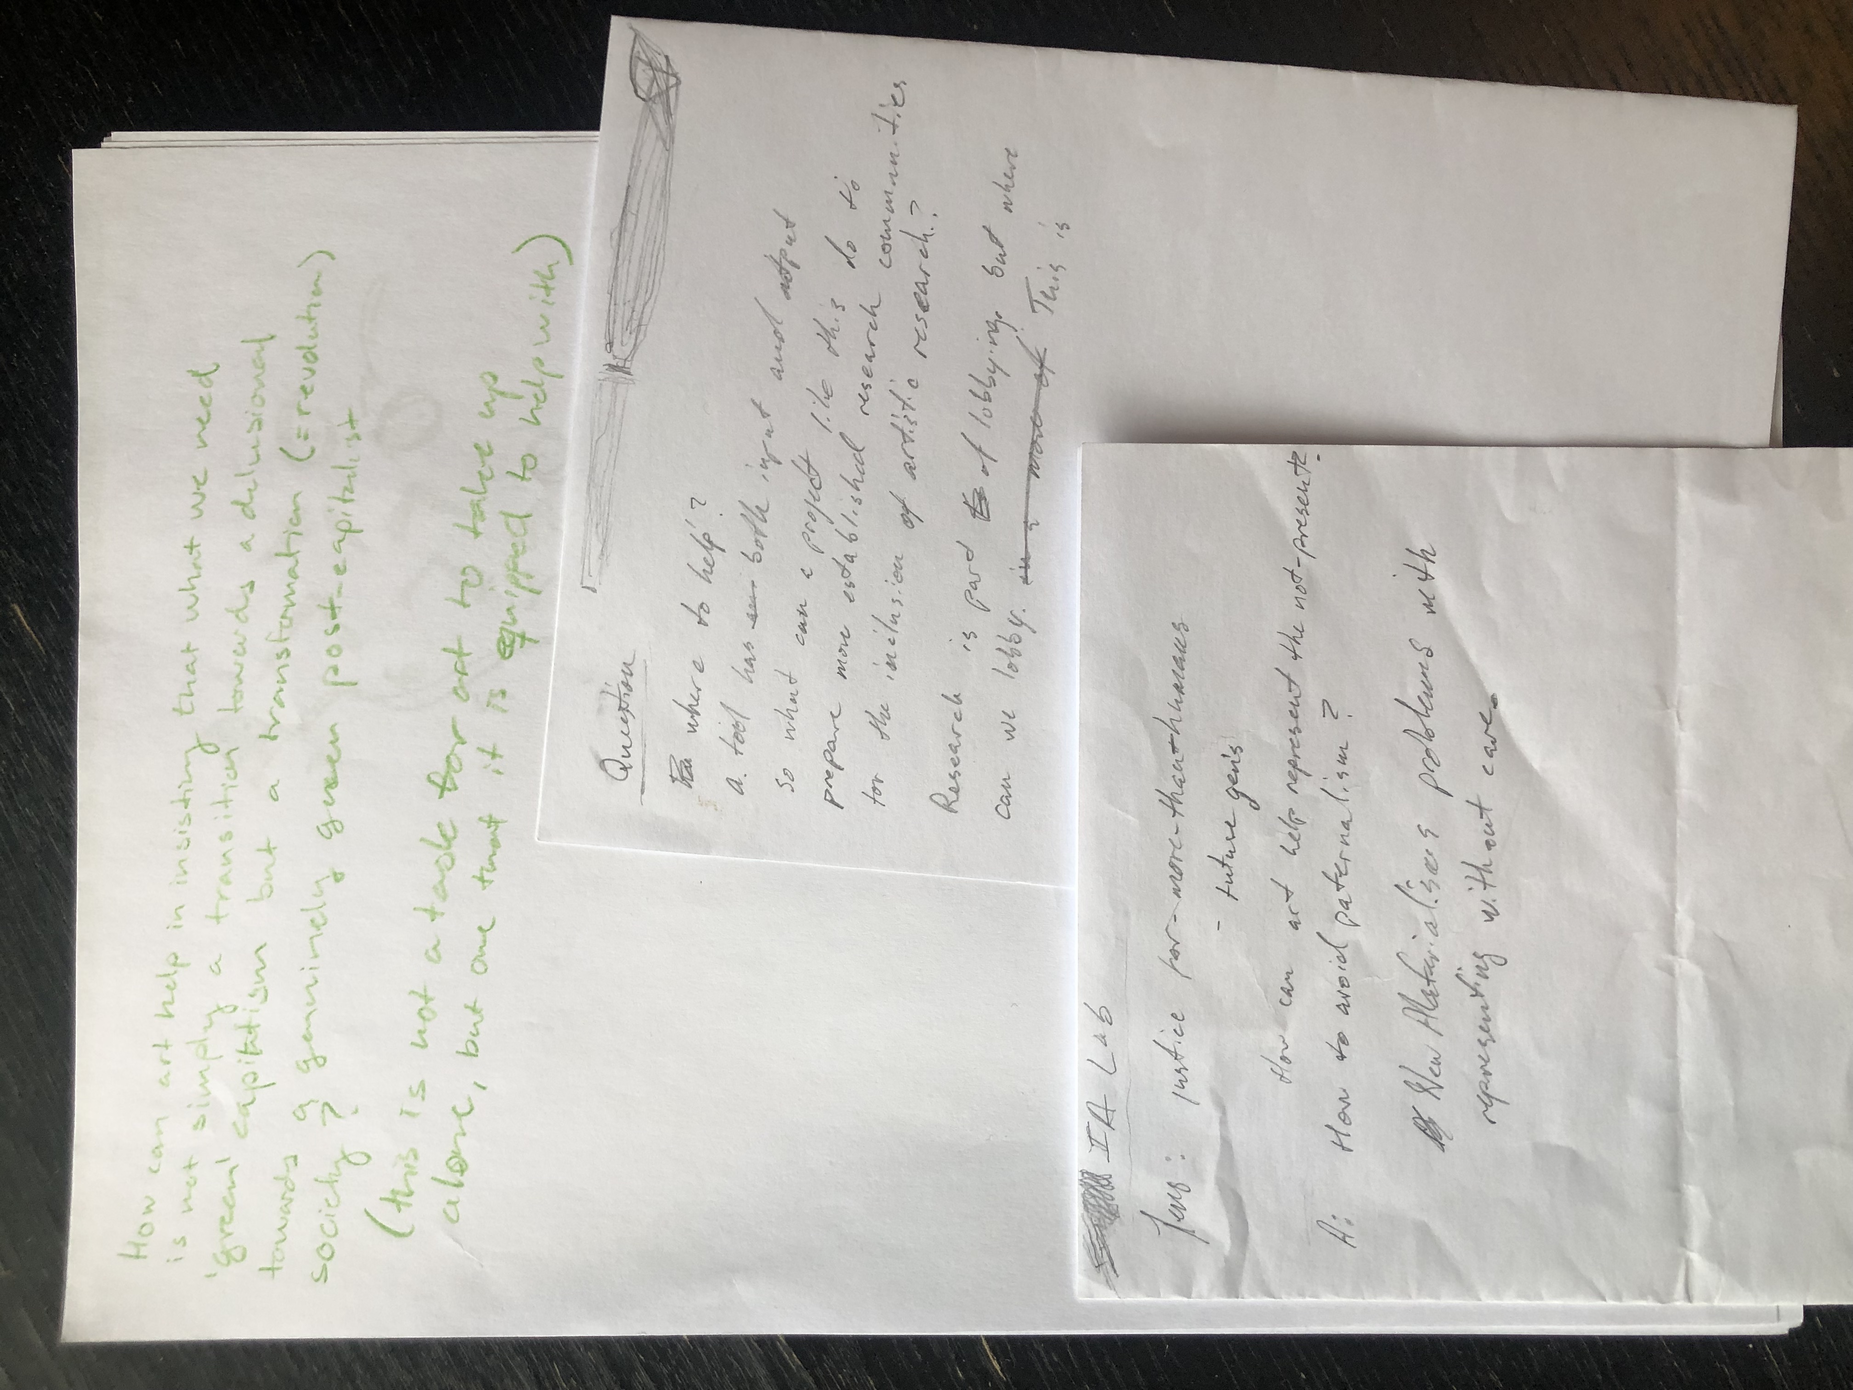 How can art help in insisting that what we need
is not simply a transition towards a delusional
'green' capitalism but a transformation (= revolution)
towards a genuinely green post-capitalist
society?
(this is not a task for art to take up
alone, but one that it is equipped to help with)
Question
where to help'?
a. tool has both input and output
so what can a project like this do to
prepare more established research communities
for the inclusion of artistic research?
Research is part of lobbying. but where
can we lobby. more of This is
IA Lab
Jens: justice for-more-than-humans
- future gen's
How can art help represent the not-present?
A: How to avoid paternalism?
New Materialisms problems with
representing without care.